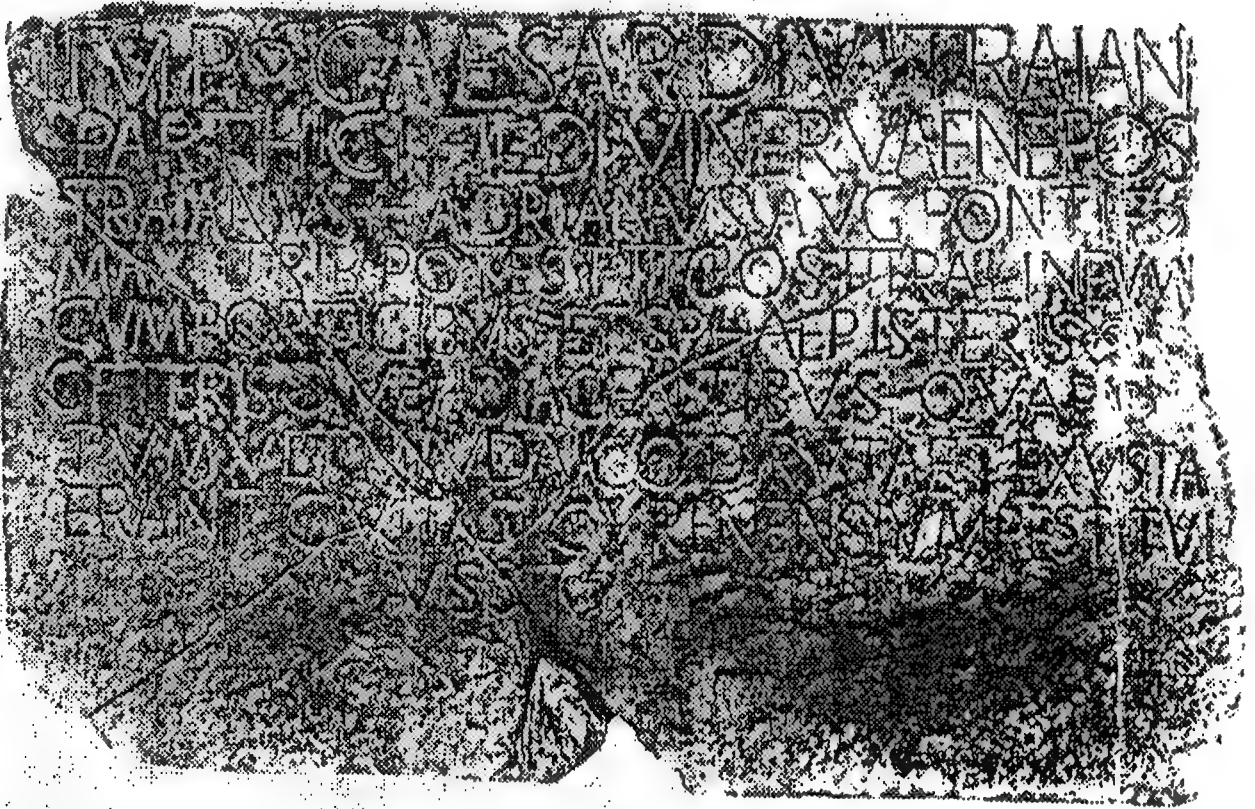 IMP CAESAR DIVI TRAIANI
PARTHICI F DIVI NERVAE NEPOS
TRAIANVS HADRIANVS AVG PONTIF
MAX TRIB POTES III COS III BALINEVM
CVM PORTICIBVS ET SPHAERISTERIS
CETERISQVE ADIACENTIBVS QVAE
TVMVLTV IVDAICO DIRVTA ET EXVSTA
ERANT CIVITATI CYRENENSIVM RESTITVI